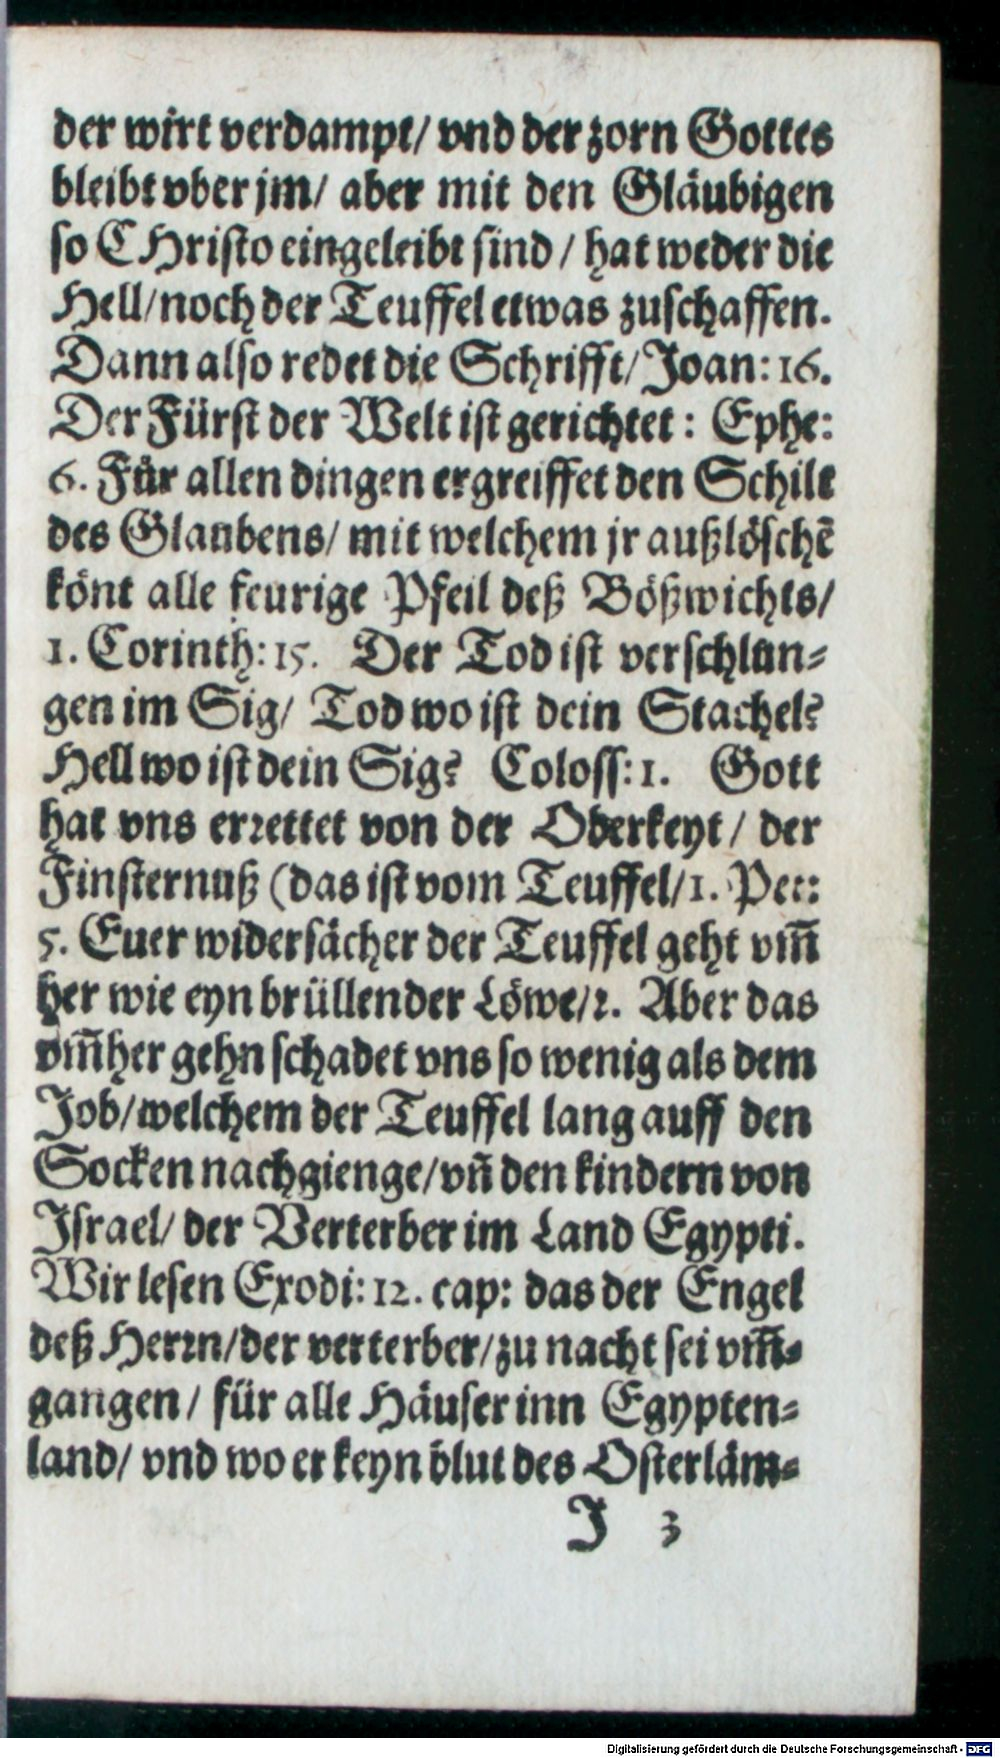 der wirt verdampt/ vnd der zorn Gottes
bleibt vber jm/ aber mit den Gläubigen
so CHristo eingeleibt sind / hat weder die
Hell/noch der Teuffel etwas zuschaffen.
Dann also redet die Schrifft/Joan: 16.
Der Fürst der Welt ist gerichtet: Ephe:
6. Für allen dingen ergreiffet den Schilt
des Glaubens/ mit welchem jr außlöschē
könt alle feurige Pfeil deß Bößwichts/
1. Corinth: 15. Der Tod ist verschlun-
gen im Sig/ Tod wo ist dein Stachel?
Hell wo ist dein Sig? Coloss: 1. Gott
hat vns errettet von der Oberkeyt / der
Finsternuß (das ist vom Teuffel/1. Pet:
5. Euer widersächer der Teuffel geht vm̄
her wie eyn brüllender Löwe/ꝛ. Aber das
vm̄her gehn schadet vns so wenig als dem
Job/welchem der Teuffel lang auff den
Socken nachgienge/vn̄ den kindern von
Israel/ der Verterber im Land Egypti.
Wir lesen Exodi: 12. cap: das der Engel
deß Herrn/der verterber/zu nacht sei vm̄-
gangen / für alle Häuser inn Egypten-
land/ vnd wo er keyn blut des Osterläm-
J 3
Digitalisierung gefördert durch die Deutsche Forschungsgemeinschaft - DFG